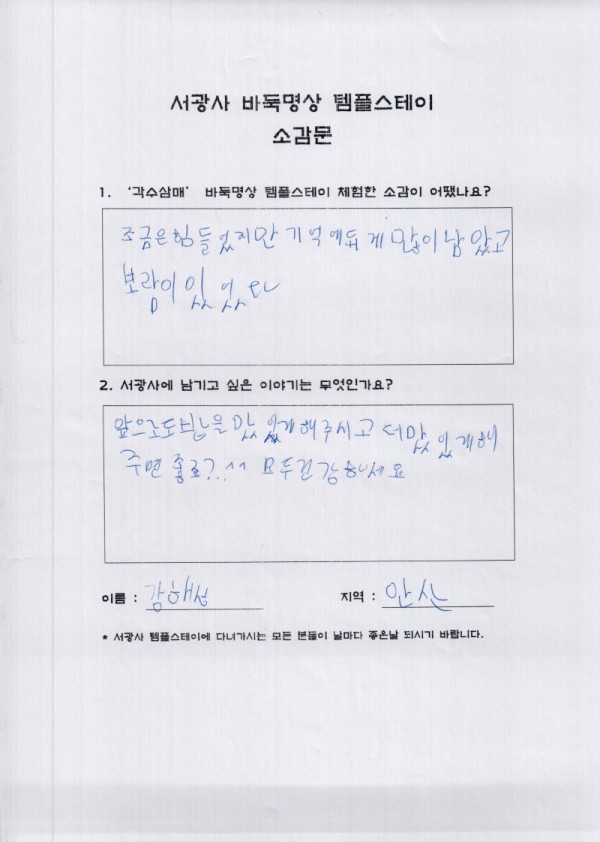 서광사 바둑명상 템플스테이
소감문
1. '각수삼매' 바둑명상 템플스테이 체험한 소감이 어땠나요?
조금은힘들었지만 기억에 게 많이남았고
보람이 있었
2. 서광사에 남기고 싶은 이야기는 무엇인가요?
앞으로도밥을 맛있게해주시고 더맛있게해
주면 좋르?..^^ 모두건강하세요
이름 : 감해성
지역 : 안산
* 서광사 템플스테이에 다녀가시는 모든 분들이 날마다 좋은날 되시기 바랍니다.